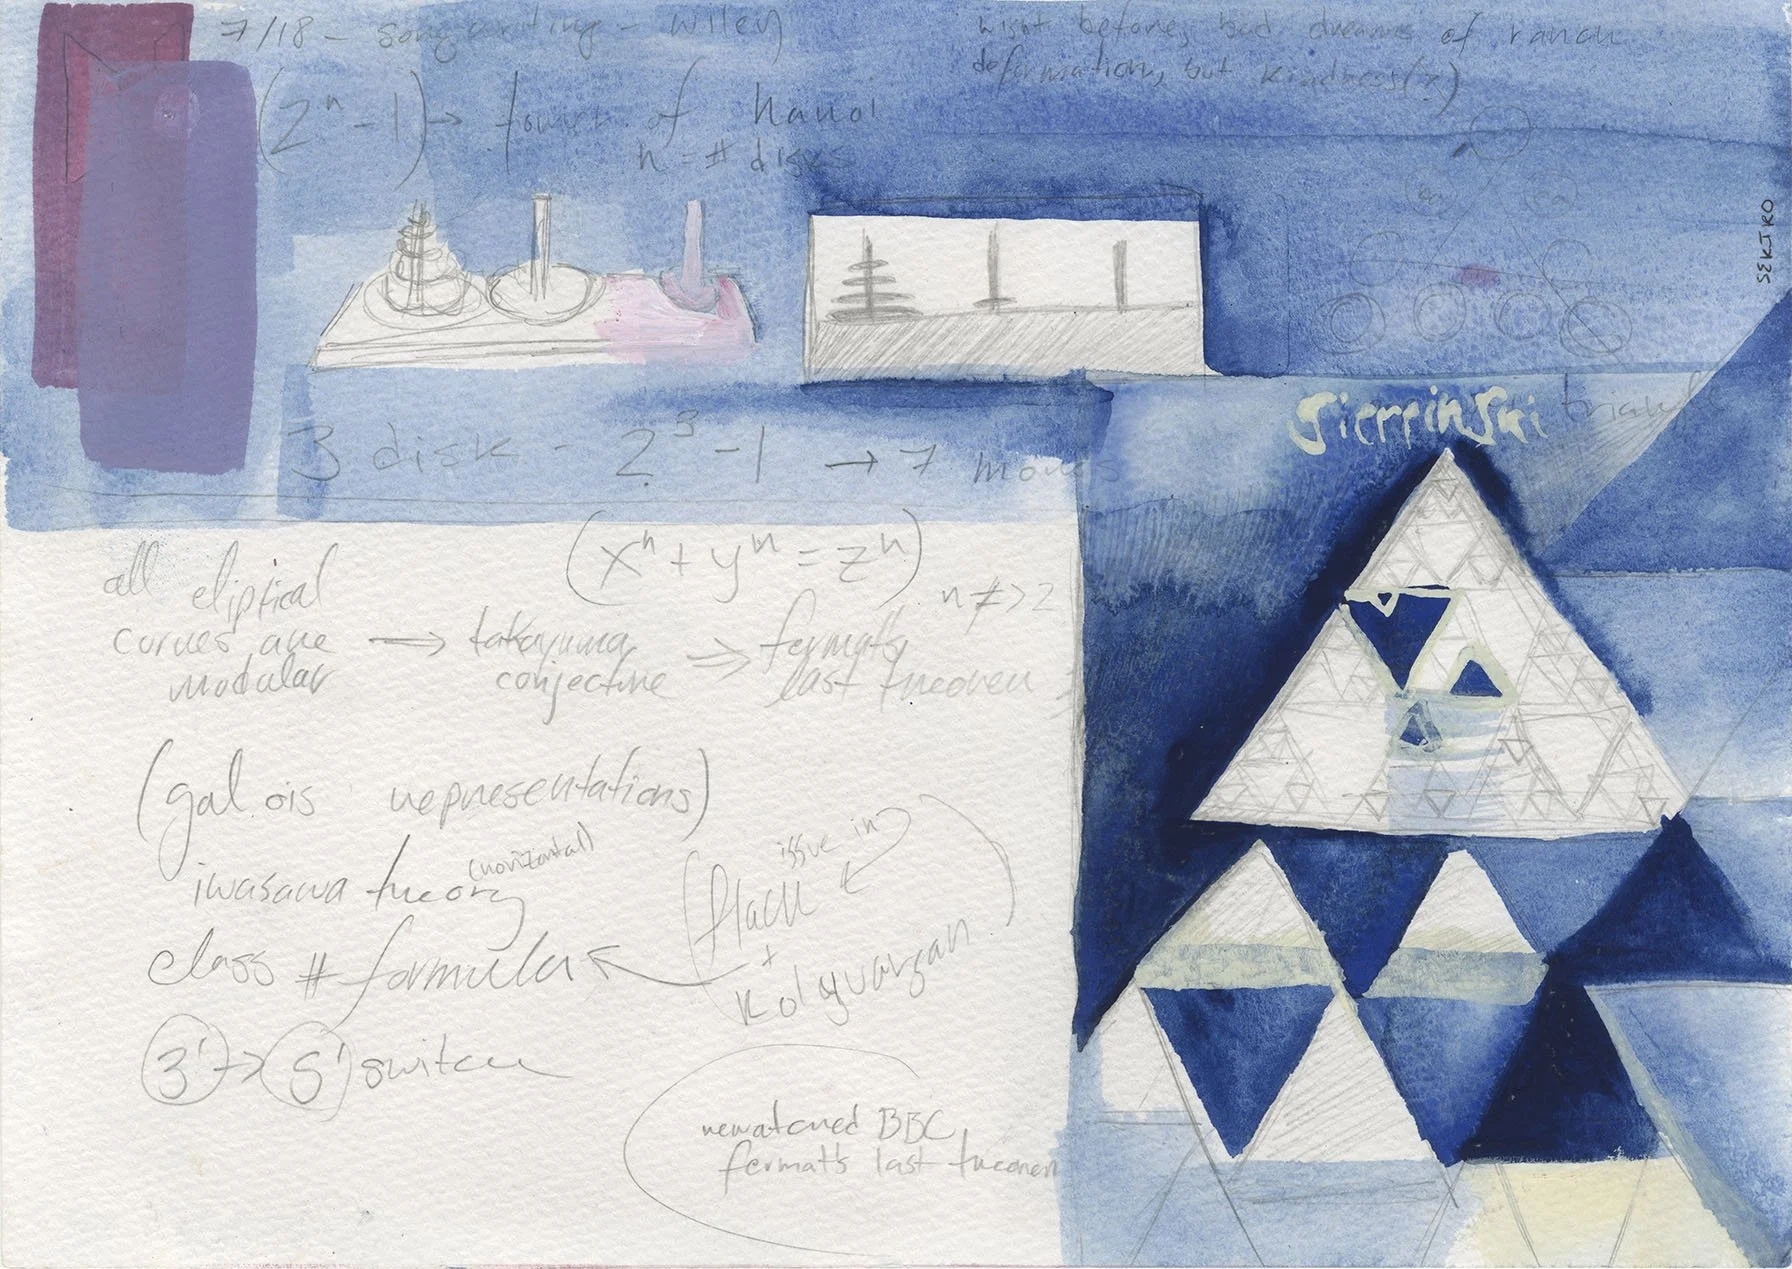 7/18 - songwriting - wiley
night before, bad dreams of ranch
deformation, but kindness(x)
(2ⁿ - 1) → tower of hanoi
n = # disks
SEKIRO
Sierpinski triangle
3 disk - 2³ - 1 → 7 moves
(xⁿ + yⁿ = zⁿ)
n ≠> 2
all eliptical
curves are
modular
→ takayuma
conjecture
⇒ fermat's
last theorem
(galois representations)
iwasawa theory
(horizontal)
class # formula
issue in
flach
+
Kolyvargan
3' → 5' switch
rewatched BBC
fermat's last theorem